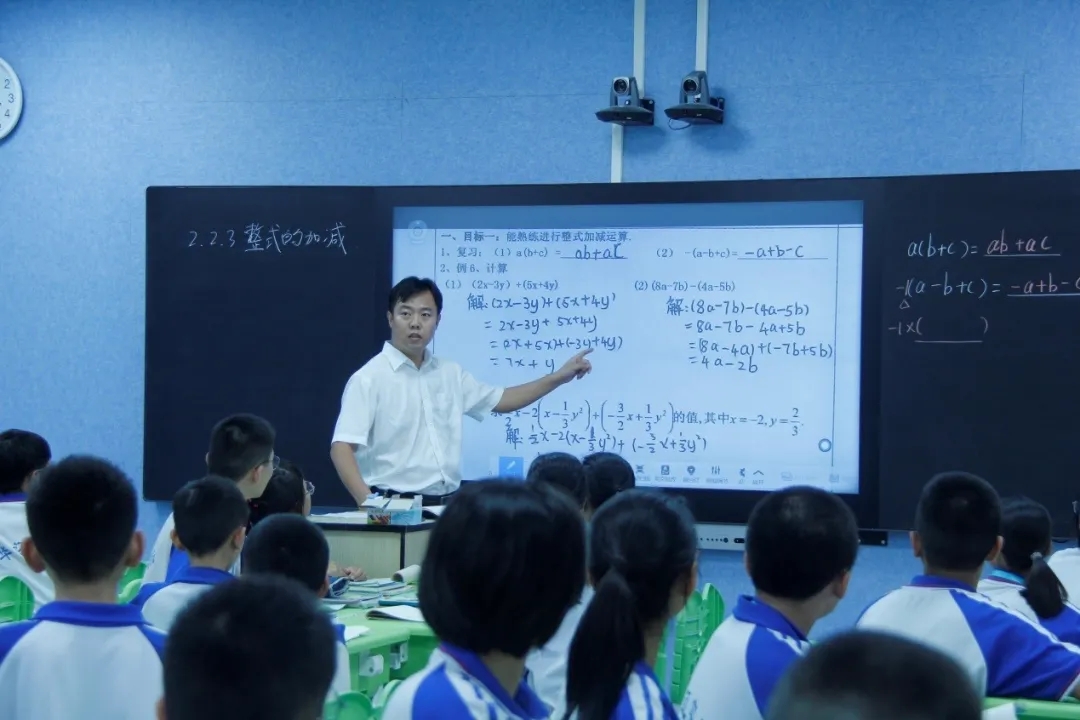 2
3
4
2.2.3 整式的加减
一、目标一：能熟练进行整式加减运算.
1、复习：（1）a(b+c) = ab+ac （2） -(a-b+c)= -a+b-c
2、例6、计算
(1) (2x-3y)+(5x+4y) (2)(8a-7b)-(4a-5b)
解:(2x-3y)+(5x+4y) 解:(8a-7b)-(4a-5b)
= 2x-3y+5x+4y =8a-7b-4a+5b
= (2x+5x)+(-3y+4y) =(8a-4a)+(-7b+5b)
= 7x+y =4a-2b
x-2(x-1/3y²)+(-3/2x+1/3y²)的值,其中x=-2,y=2/3.
解:1/2x-2(x-1/3y²)+(-3/2x+1/3y²)
a(b+c)= ab+ac
-1(a-b+c)= -a+b-c
-1×( )